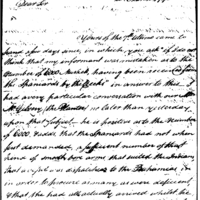 Dear Sir
Yours of the 7th Ultimo came to
hand a few days since, in which you ask if I do not
think that my informant was mistaken as to the
number of 6000 Muskets having been received from
the Spaniards by the Creeks in answer to this
had a very particular conversation with
no later than yesterday
upon that Subject he is positive as to the
number of 6000 & adds that the Spaniards had not when
first demanded, a sufficient number of that
kind of smooth bore arms that suited the Indians
that a vessel was dispatched to the Bahamas
in order to procure as many as were deficient
& that she had actually arrived whilst he